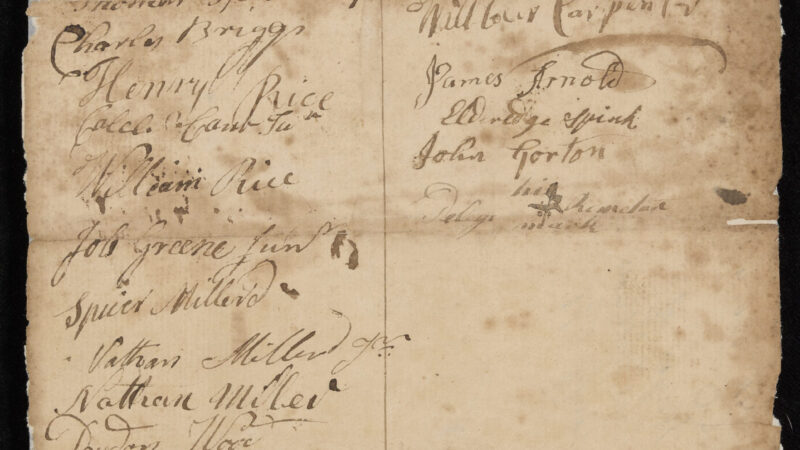 Charles Briggs
Henry Rice
Caleb Carr Jun
William Rice
Job Greene Junr
Spicer Millerd
Nathan Millerd Jr
Nathan Miller
Wood
Wilbour Carpenter
James Arnold
Elderedge Spink
John Gorton
his
mark